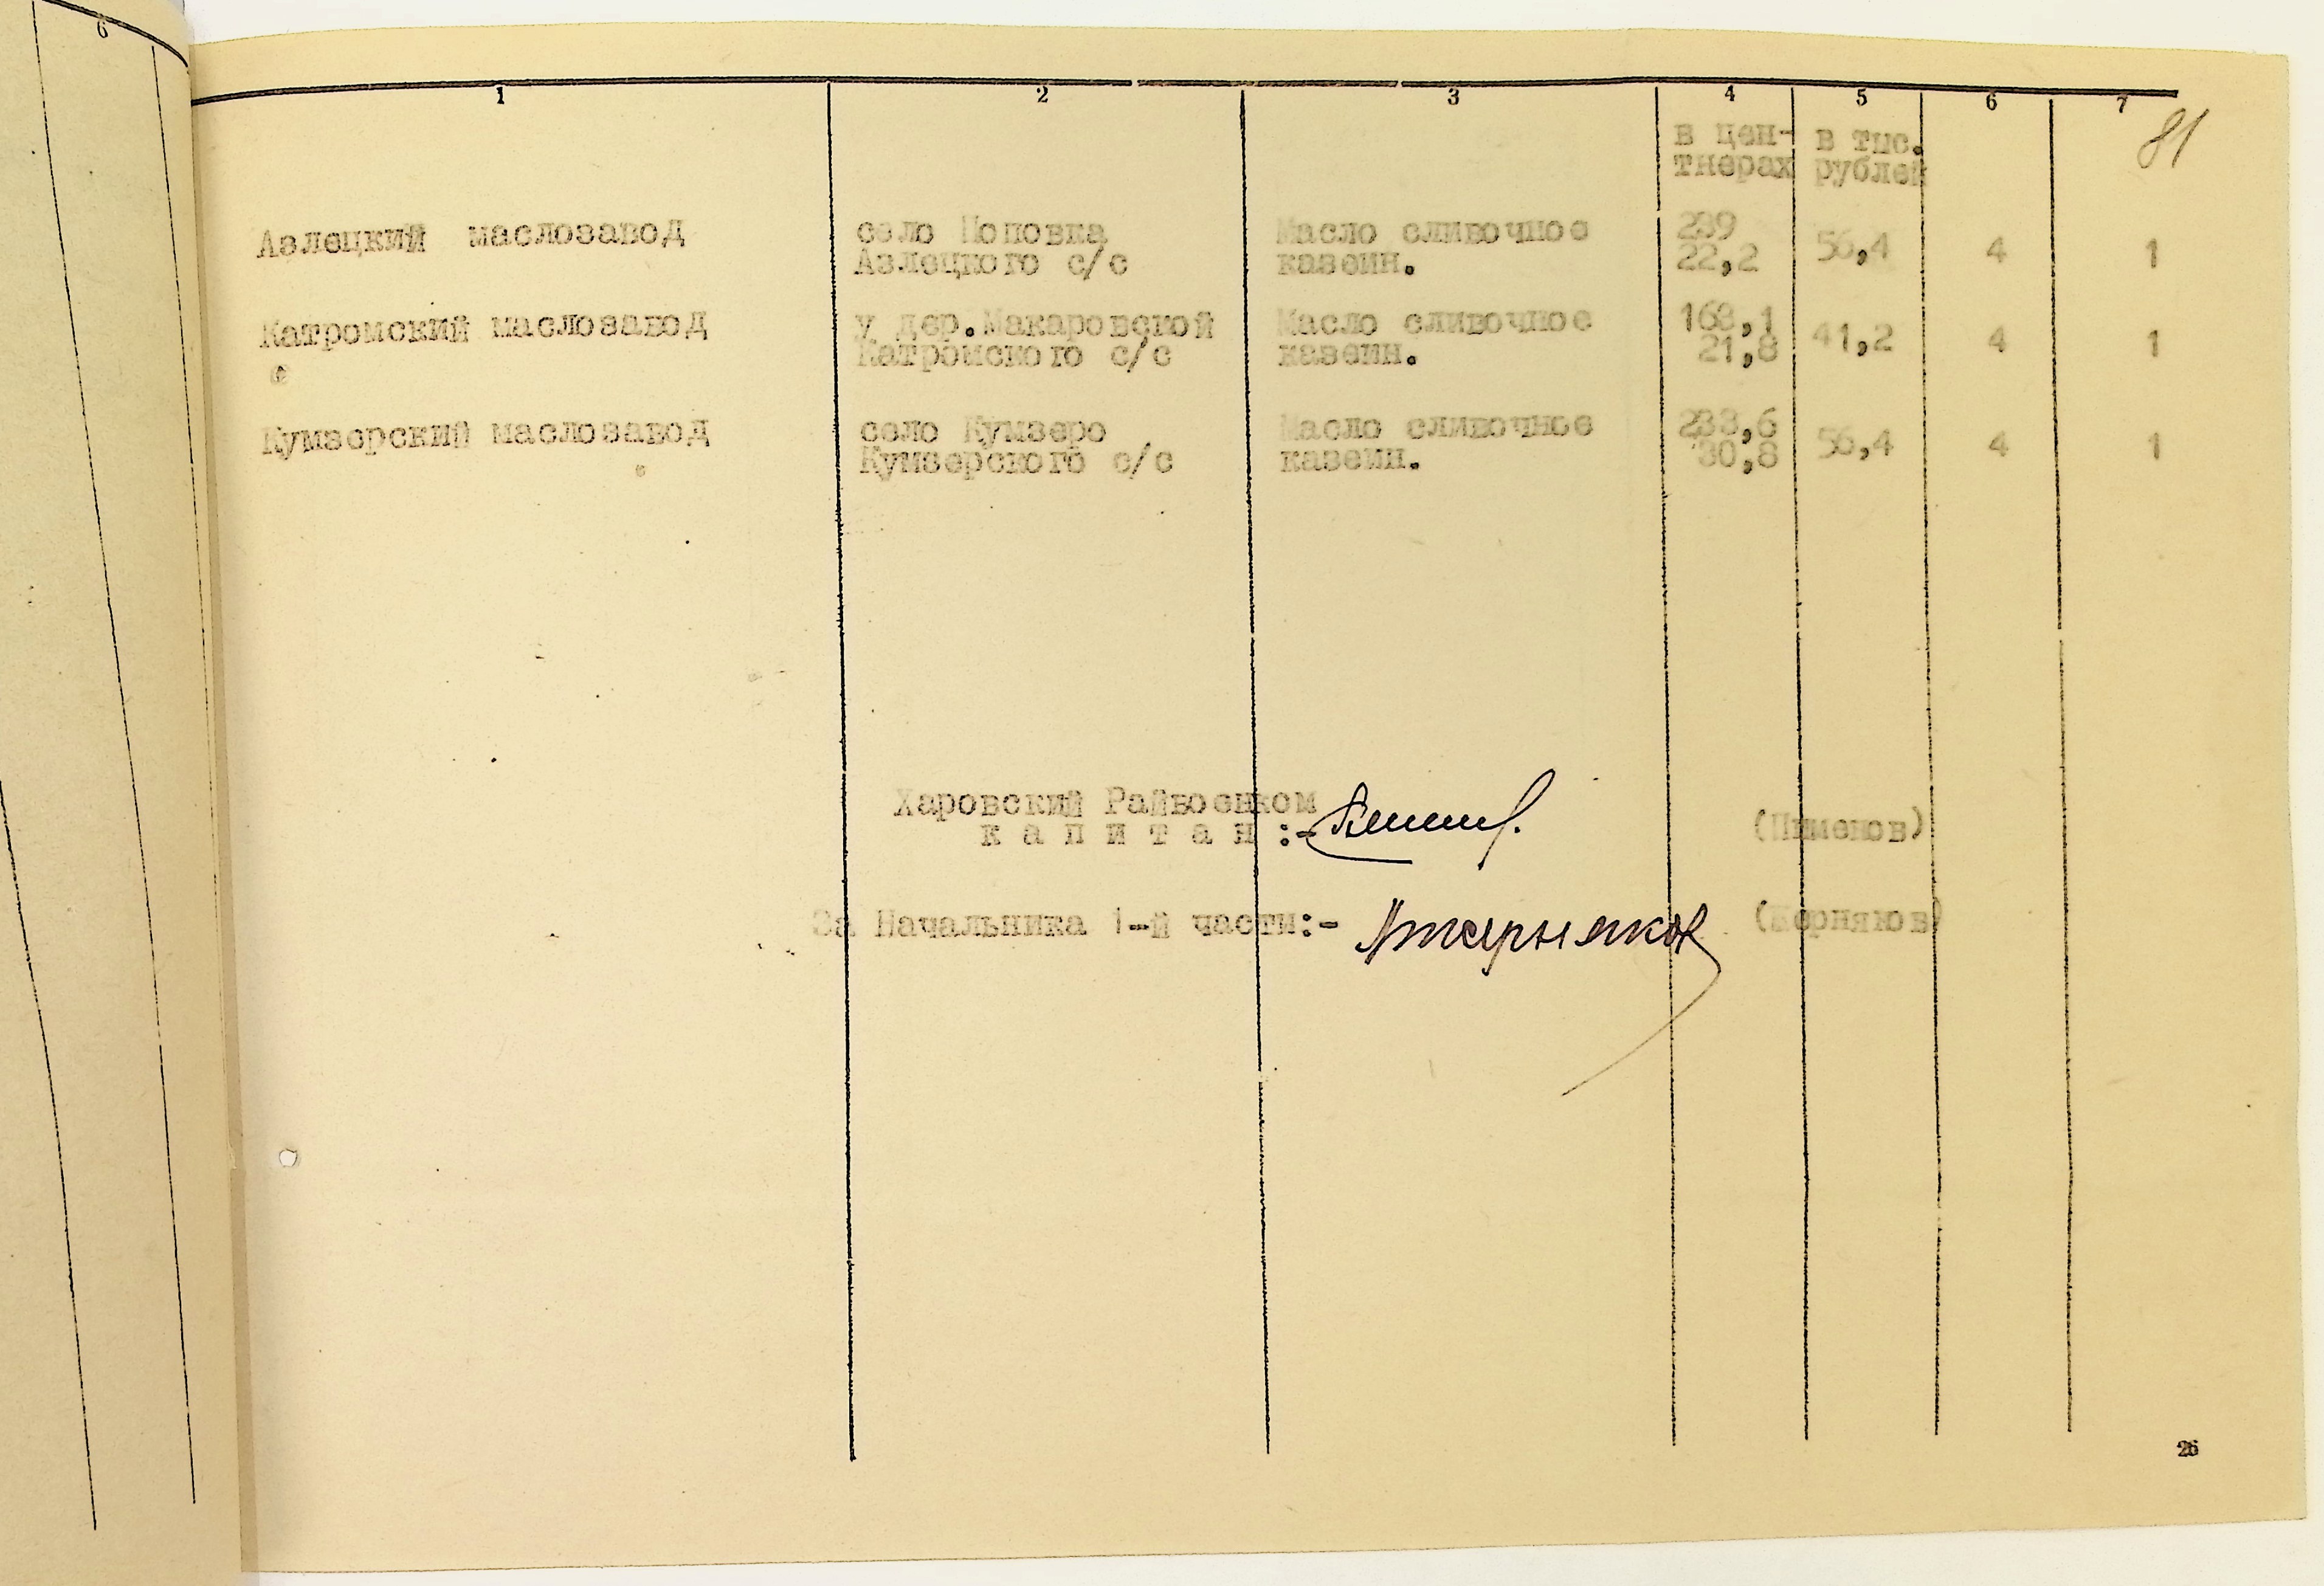 6
1 2 3 4 5 6 7
81
в цен- в тыс.
тнерах рублей
Азлецкий маслозавод село Поповка Масло сливочное 239 56,4 4 1
Азлецкого с/с казеин. 22,2
Катромский маслозавод у дер.Макаровской Масло сливочное 168,1 41,2 4 1
Катромского с/с казеин. 21,8
Кумзерский маслозавод село Кумзеро Масло сливочное 238,6 56,4 4 1
Кумзерского с/с казеин. 30,8
Харовский Райвоенком
капитан:- (Пименов)
За Начальника 1-й части:- (Корняков)
26